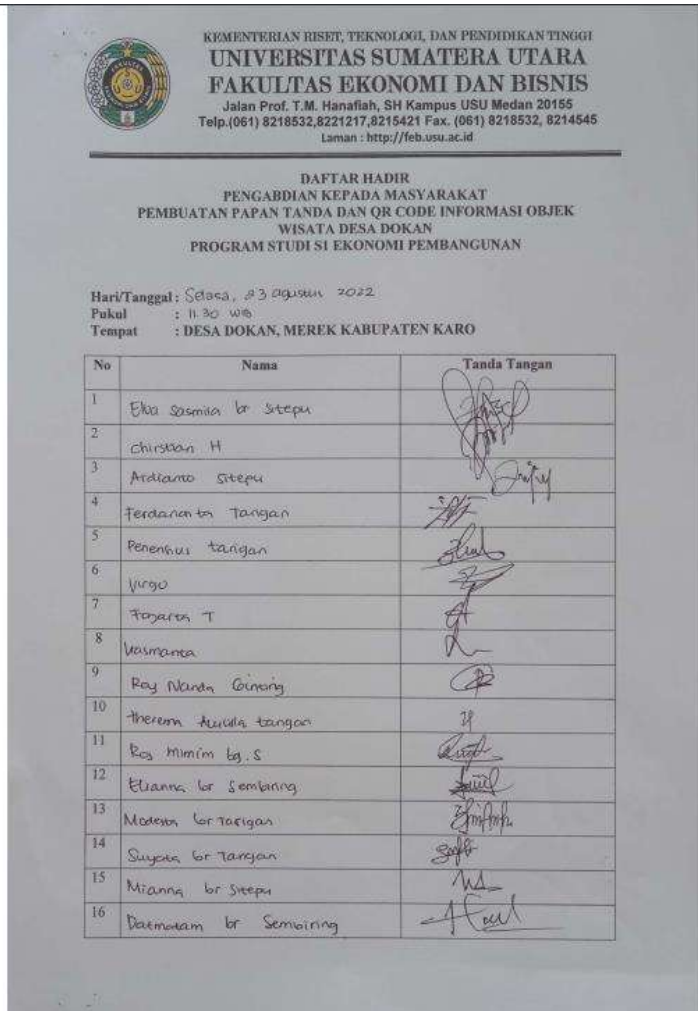 KEMENTERIAN RISET, TEKNOLOGI, DAN PENDIDIKAN TINGGI
UNIVERSITAS SUMATERA UTARA
FAKULTAS EKONOMI DAN BISNIS
Jalan Prof. T.M. Hanafiah, SH Kampus USU Medan 20155
Telp.(061) 8218532,8221217,8215421 Fax. (061) 8218532, 8214545
Laman : http://feb.usu.ac.id
DAFTAR HADIR
PENGABDIAN KEPADA MASYARAKAT
PEMBUATAN PAPAN TANDA DAN QR CODE INFORMASI OBJEK
WISATA DESA DOKAN
PROGRAM STUDI S1 EKONOMI PEMBANGUNAN
Hari/Tanggal : Selasa, 23 agustus 2022
Pukul : 11.30 WIB
Tempat : DESA DOKAN, MEREK KABUPATEN KARO
No Nama Tanda Tangan
1 Elva Sasmita br Sitepu
2 Chirstian H
3 Ardianto Sitepu
4 Ferdananta Tarigan
5 tarigan
6 Virgo
7 T
8
9 Roy Nanda Ginting
10 tarigan
11 Ros Mimim bg. S
12 Elianna br Sembiring
13 Modesta br Tarigan
14 br Tarigan
15 Mianna br Sitepu
16 Datmatam br Sembiring